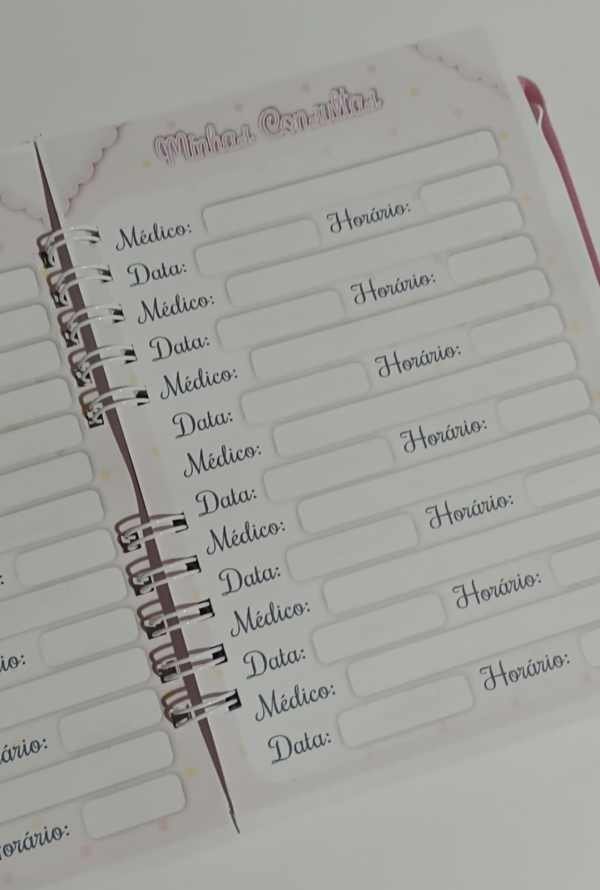 :
io:
ário:
orário:
Minhas Consultas
Médico:
Data: Horário:
Médico:
Data: Horário:
Médico:
Data: Horário:
Médico:
Data: Horário:
Médico:
Data: Horário:
Médico:
Data: Horário:
Médico:
Data: Horário: